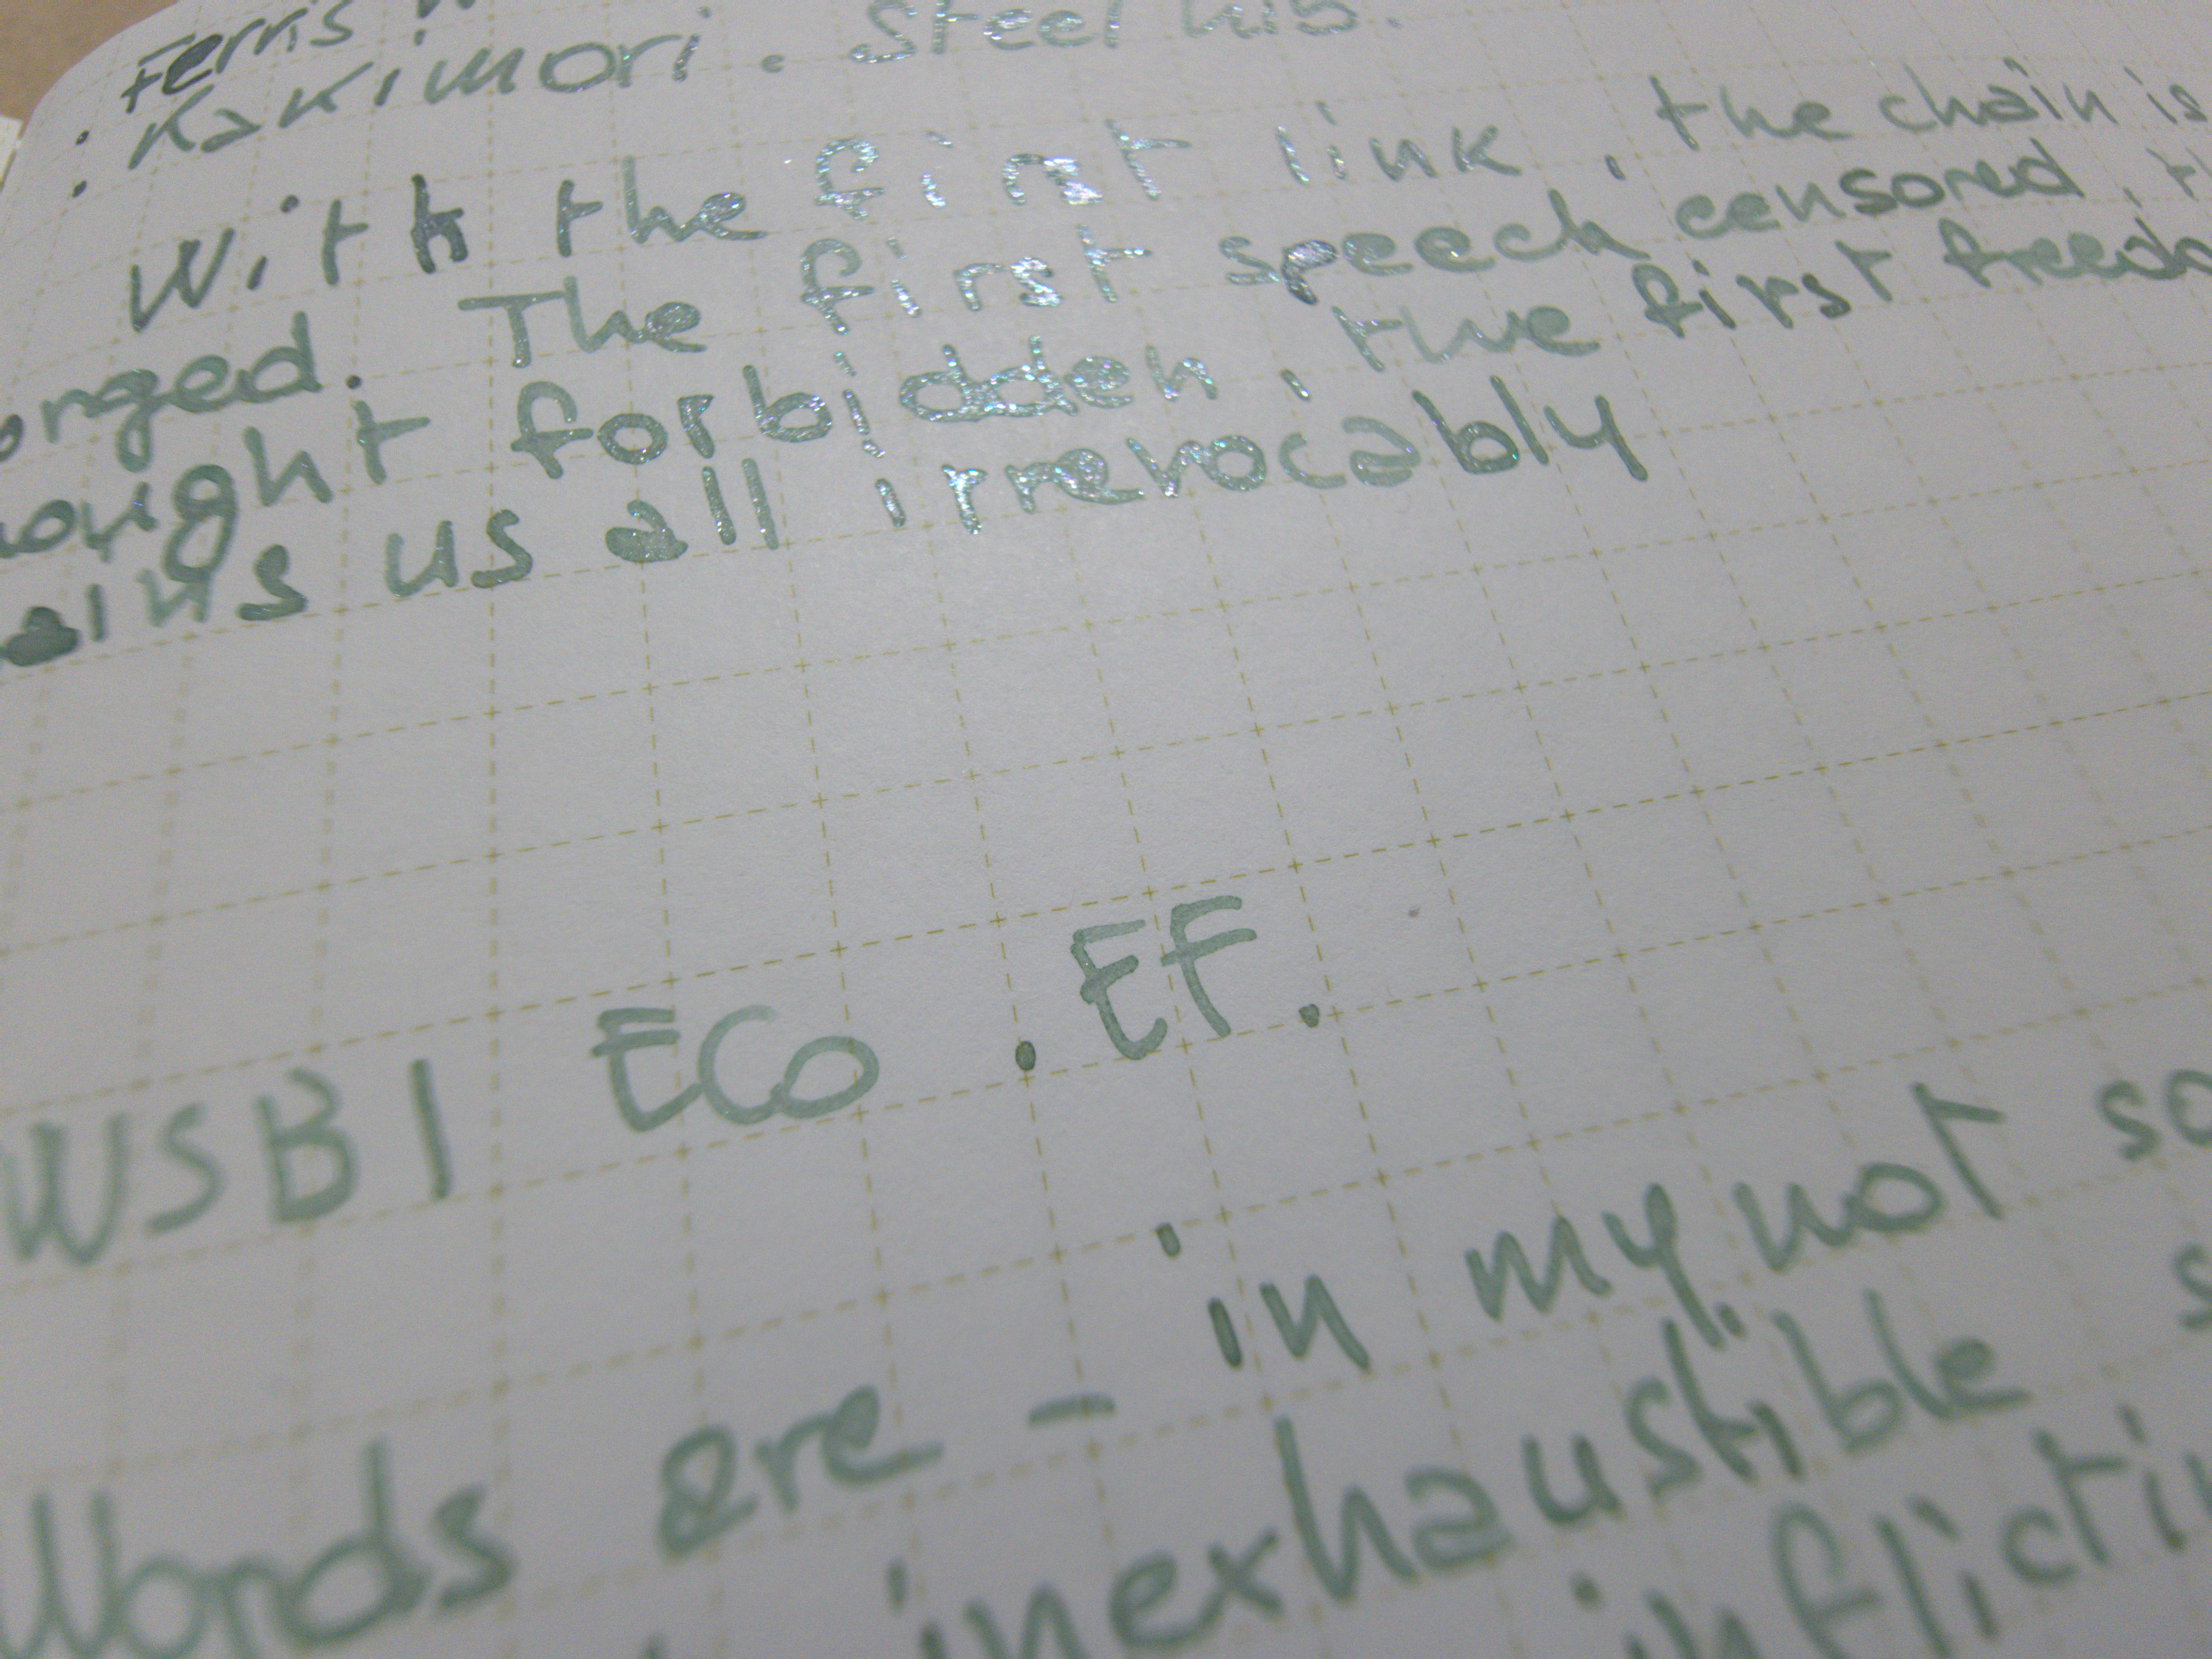 Ferris
Kakimori. Steel nib.
With the first link, the chain is
orged. The first speech censored, th
ought forbidden, the first freedo
ains us all irrevocably
WSB1 ECO. EF.
Words are - in my not so
inexhaustible s
inflicti